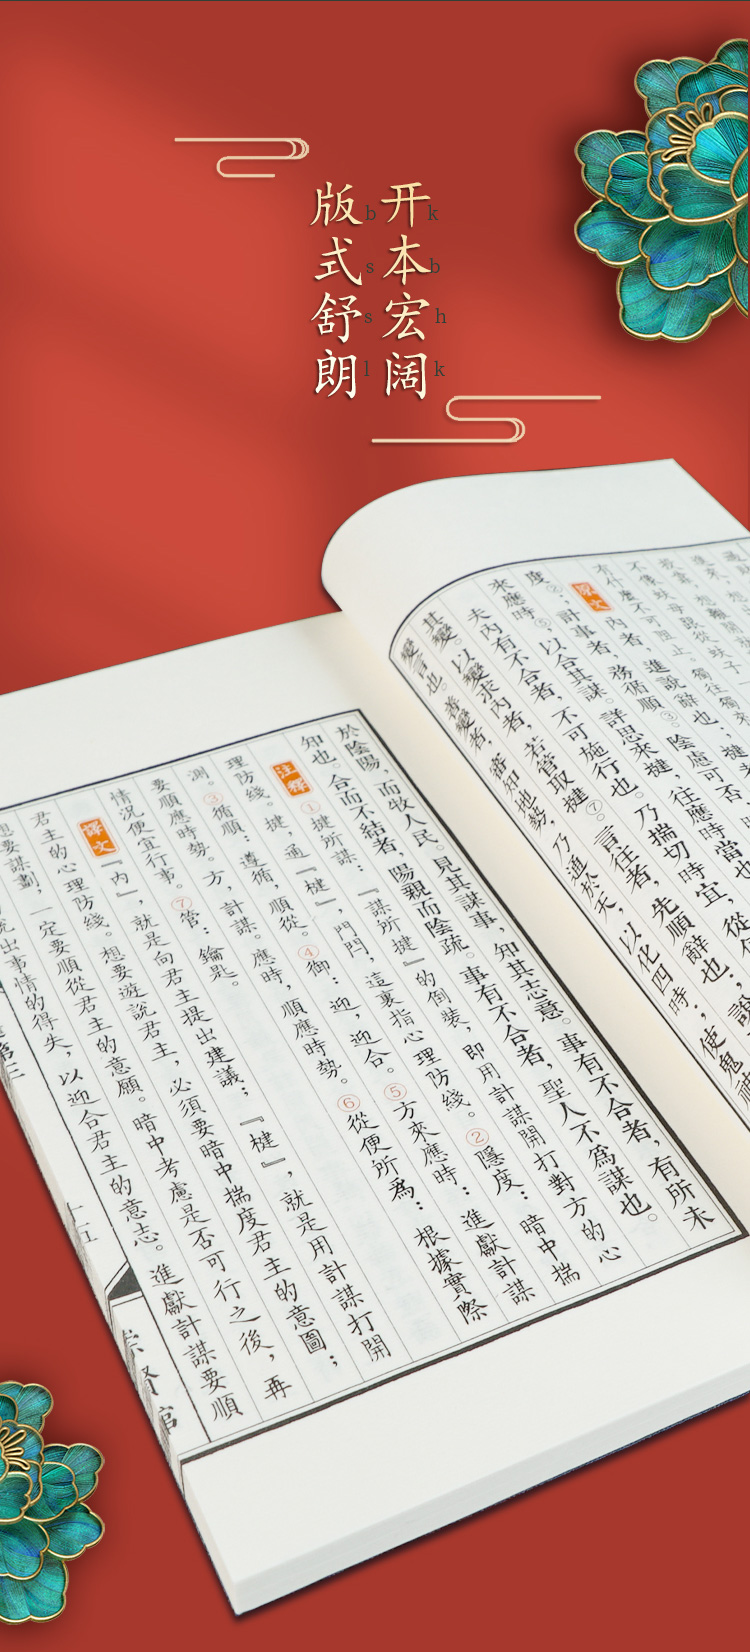 开本宏阔
k b h k
版式舒朗
b s s l
不像蚨母跟從蚨子一
有什麼不可阻止。獨往獨
原文 內者,進說辭也;楗
度②;計事者,務循順③。陰慮可否
來應時⑤,以合其謀。詳思來楗,往應時當也
夫內有不合者,不可施行也。乃揣切時宜,從
其變。以變求內者,若管取楗⑦。言往者,先順辭也;說
變言也。善變者,審知地勢,乃通於天,以化四時,使鬼神
於陰陽,而牧人民。見其謀事,知其志意。事有不合者,有所未
知也。合而不結者,陽親而陰疏。事有不合者,聖人不為謀也。
注釋 ①楗所謀:『謀所楗』的倒裝,即用計謀開打對方的心
理防綫。楗,通『楗』,門閂,這裏指心理防綫。②隱度:暗中揣
測。③循順:遵循,順從。④御:迎,迎合。⑤方來應時:進獻計謀
要順應時勢。方,計謀。應時,順應時勢。⑥從便所為:根據實際
情況便宜行事。⑦管:鑰匙。
譯文 『內』,就是向君主提出建議;『楗』,就是用計謀打開
君主的心理防綫。想要遊說君主,必須要暗中揣度君主的意圖;
想要謀劃,一定要順從君主的意願。暗中考慮是否可行之後,再
說出事情的得失,以迎合君主的意志。進獻計謀要順
第三
十五
崇賢館